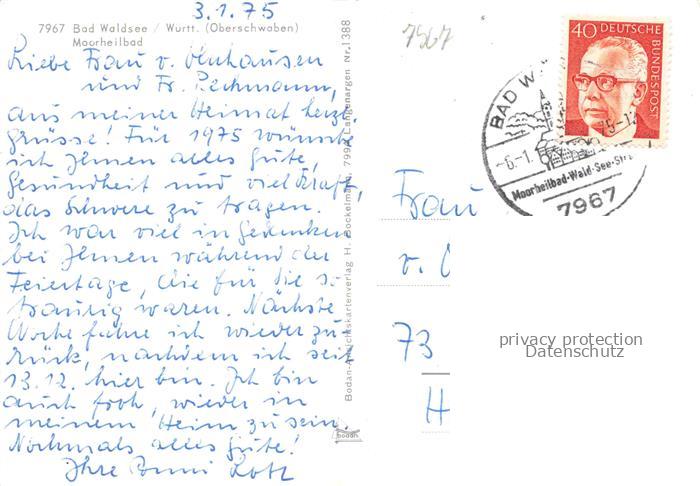 3.1.75
7967 Bad Waldsee / Württ. (Oberschwaben)
Moorheilbad
Liebe Frau v.
und Fr. Pechmann,
aus meiner Heimat herzl.
Grüsse! Für 1975 wünsche
ich Ihnen alles Gute,
Gesundheit und viel Kraft,
das Schwere zu tragen.
Ich war viel in Gedanken
bei Ihnen während der
Feiertage, die für die s.
traurig waren. Nächste
Woche fahre ich wieder zu-
rück, nachdem ich seit
13.12. hier bin. Ich bin
auch froh, wieder in
meinem Heim zu sein.
Nochmals alles Gute!
Ihre Lotz
Bodan-Ansichtskartenverlag H. Bockelmann, 7994 Langenargen Nr. 1388
bodan
7967
40 DEUTSCHE
BUNDESPOST
BAD W
-6.-1. 75-12
Moorheilbad-Wald-See-Str
7967
Frau
v.
73
H
privacy protection
Datenschutz